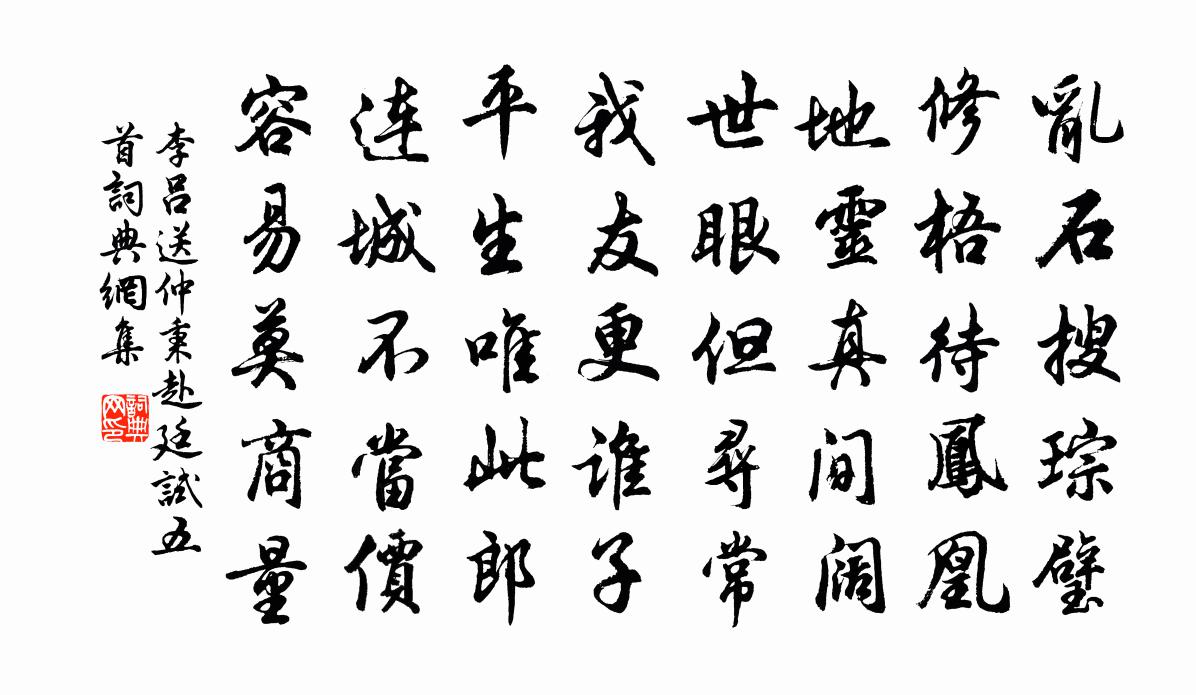 亂石搜琮璧
修梧待鳳凰
地靈真間闊
世眼但尋常
我友更誰子
平生唯此郎
連城不當價
容易莫商量
李呂送仲秉赴廷試五
首詞典網集
詞典
网印